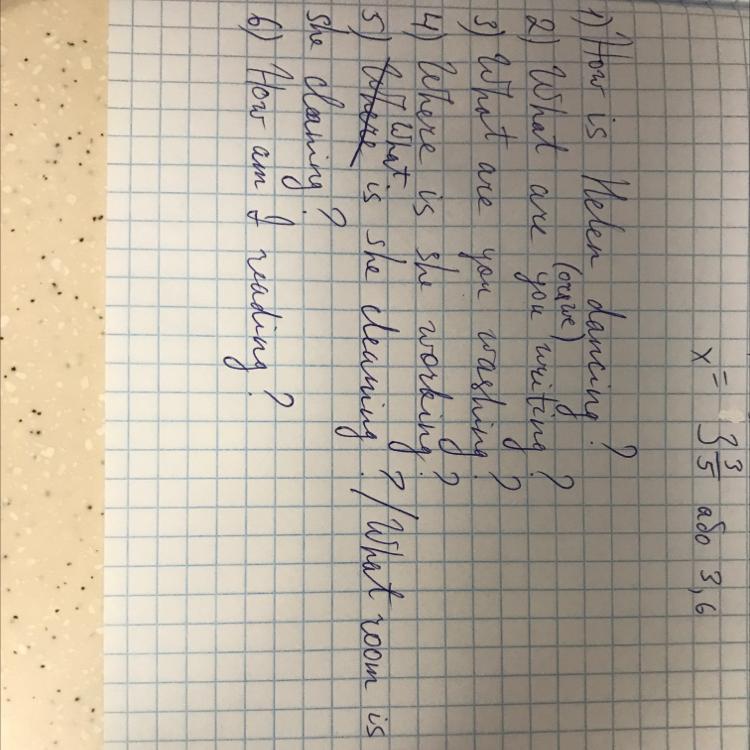 x = 3 3/5 або 3,6
1) How is Helen dancing?
2) What are you (or we) writing?
3) What are you washing?
4) Where is she working?
5) Where What is she cleaning? / What room is
she cleaning?
6) How am I reading?